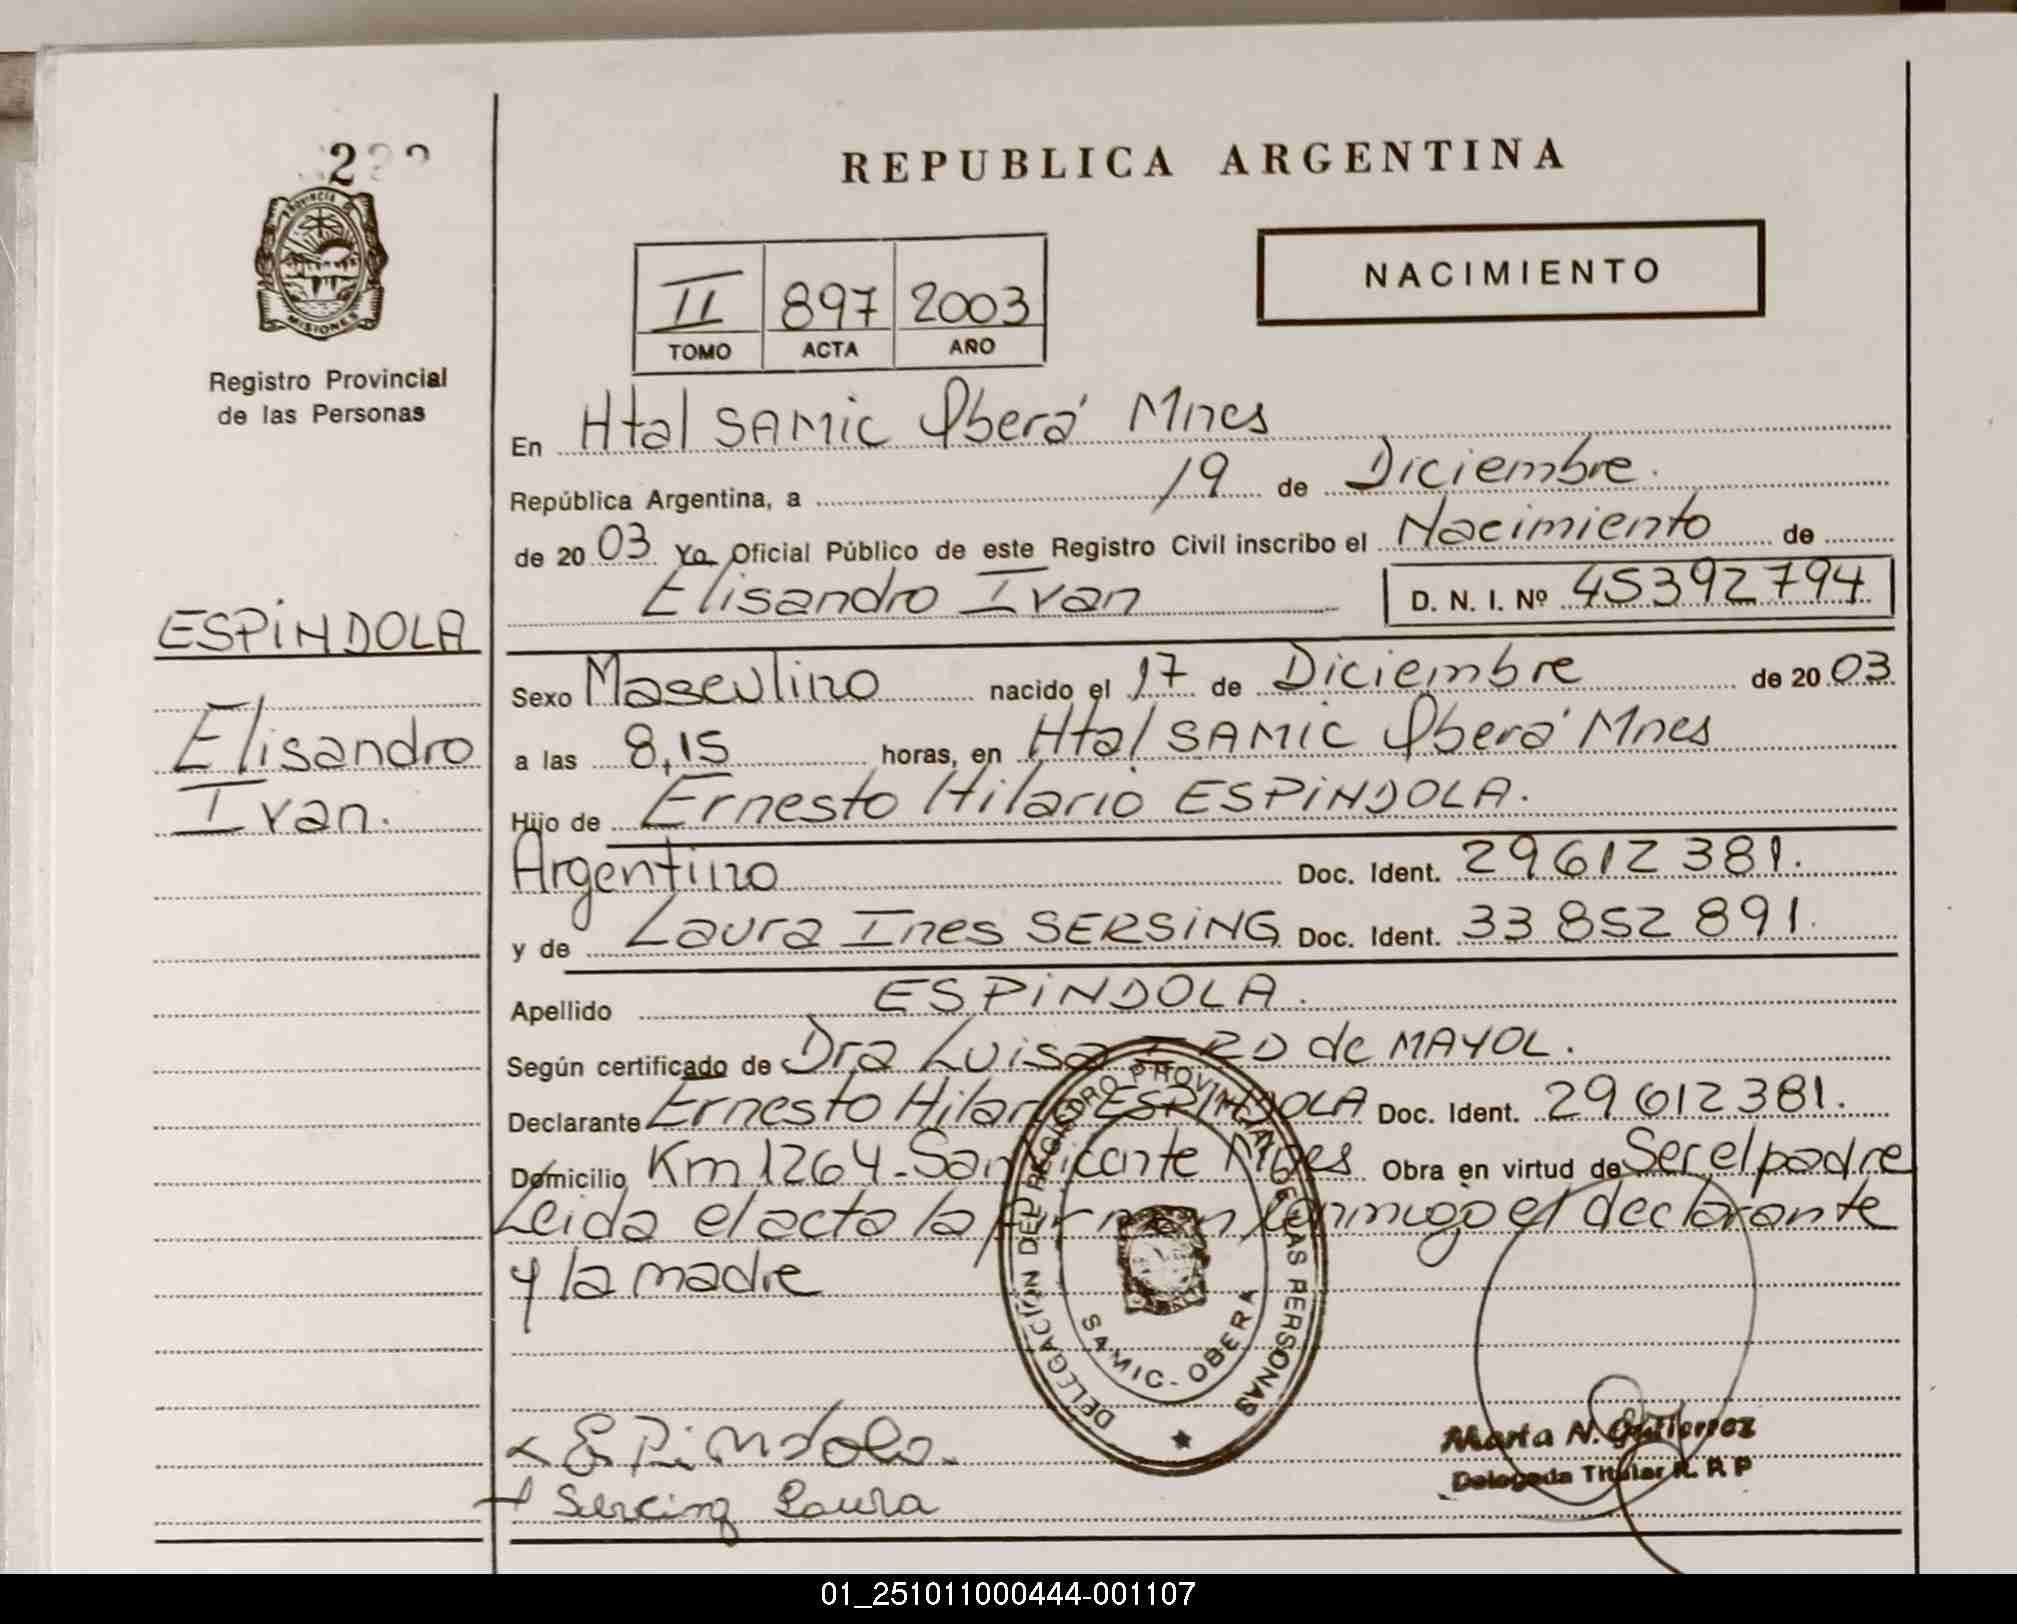 2
REPUBLICA ARGENTINA
PROVINCIA DE
MISIONES
Registro Provincial
de las Personas
II 897 2003
TOMO ACTA AÑO
NACIMIENTO
En Htal SAMIC Oberá Mnes
República Argentina, a 19 de Diciembre.
de 20 03 Yo Oficial Público de este Registro Civil inscribo el Nacimiento de
Elisandro Ivan D. N. I. Nº 45392794
ESPINDOLA
Elisandro
Ivan.
Sexo Masculino nacido el 17 de Diciembre de 20 03
a las 8,15 horas, en Htal SAMIC Oberá Mnes
Hijo de Ernesto Hilario ESPINDOLA.
Argentino Doc. Ident. 29612381.
y de Laura Ines SERSING Doc. Ident. 33 852 891.
Apellido ESPINDOLA.
Según certificado de Dra Luisa de MAYOL.
Declarante Ernesto Hilario ESPINDOLA Doc. Ident. 29 612 381.
Domicilio Km 1264-San Vicente Mnes Obra en virtud de Ser el padre
Leida el acta la firman conmigo el declarante
y la madre
DELEGACION DEL REGISTRO PROVINCIAL DE LAS PERSONAS
SAMIC - OBERA
Espindola.
Sersing Laura
Marta N. Gutierrez
Delegada Titular R. R P
01_251011000444-001107